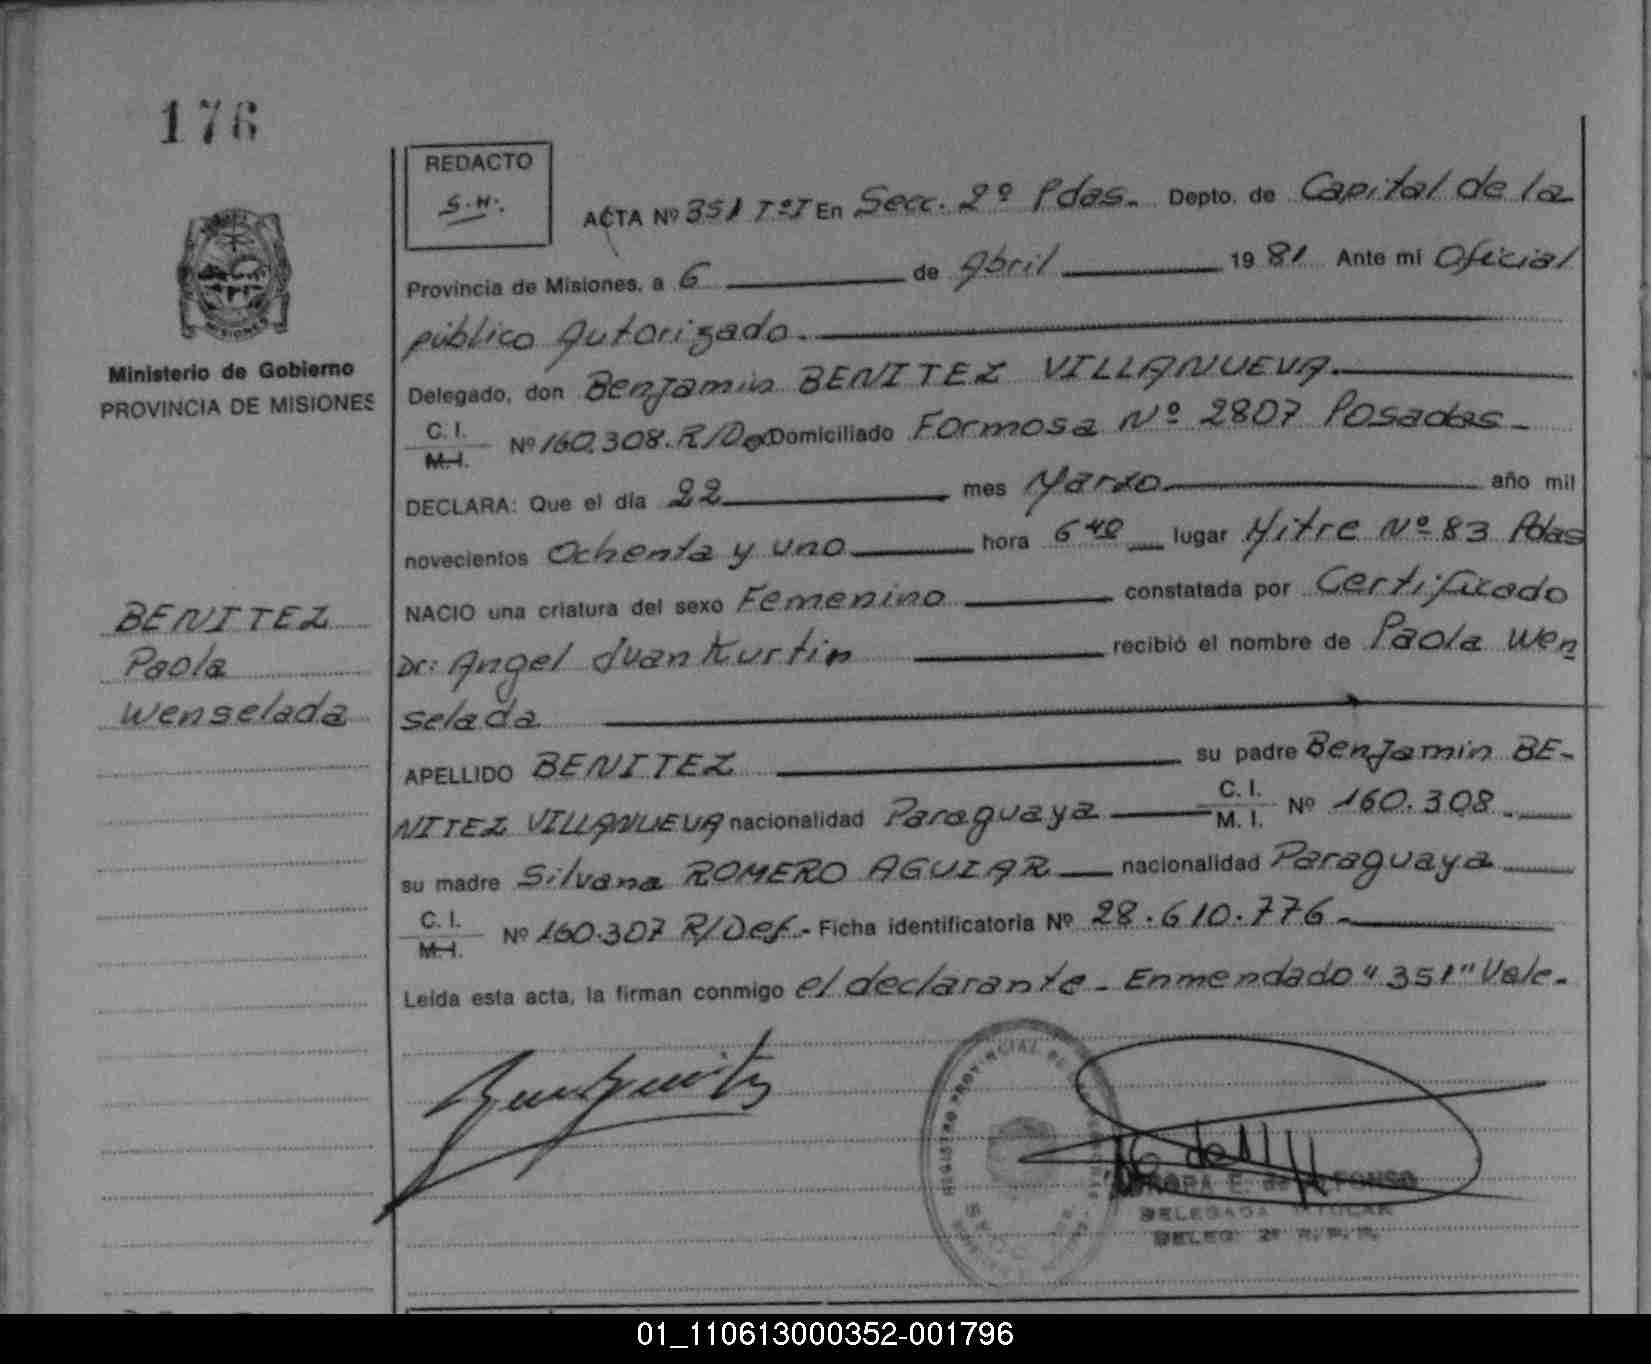 176
REDACTO
S.H.
ACTA Nº 351 TºI En Secc. 2º Pdas. Depto. de Capital de la
Provincia de Misiones, a 6 de Abril 19 81 Ante mi Oficial
público Autorizado.
Delegado, don Benjamin BENITEZ VILLANUEVA.
C. I.
M. I. Nº 160.308. R/Def Domiciliado Formosa Nº 2807 Posadas
DECLARA: Que el día 22 mes Marzo año mil
novecientos Ochenta y uno hora 6 40 lugar Mitre Nº 83 Pdas
NACIO una criatura del sexo Femenino constatada por Certificado
Dr: Angel Juan Kurtin recibió el nombre de Paola Wen
selada
APELLIDO BENITEZ su padre Benjamin BE-
NITEZ VILLANUEVA nacionalidad Paraguaya C. I. M. I. Nº 160.308
su madre Silvana ROMERO AGUIAR nacionalidad Paraguaya
C. I.
M. I. Nº 160.307 R/Def.- Ficha identificatoria Nº 28.610.776-
Leída esta acta, la firman conmigo el declarante - Enmendado "351" Vale.
MISIONES
Ministerio de Gobierno
PROVINCIA DE MISIONES
BENITEZ
Paola
Wenselada
REGISTRO PROVINCIAL DE
E. de ALFONSO
DELEGADA TITULAR
DELEG. 2ª R.P.P.
01_110613000352-001796